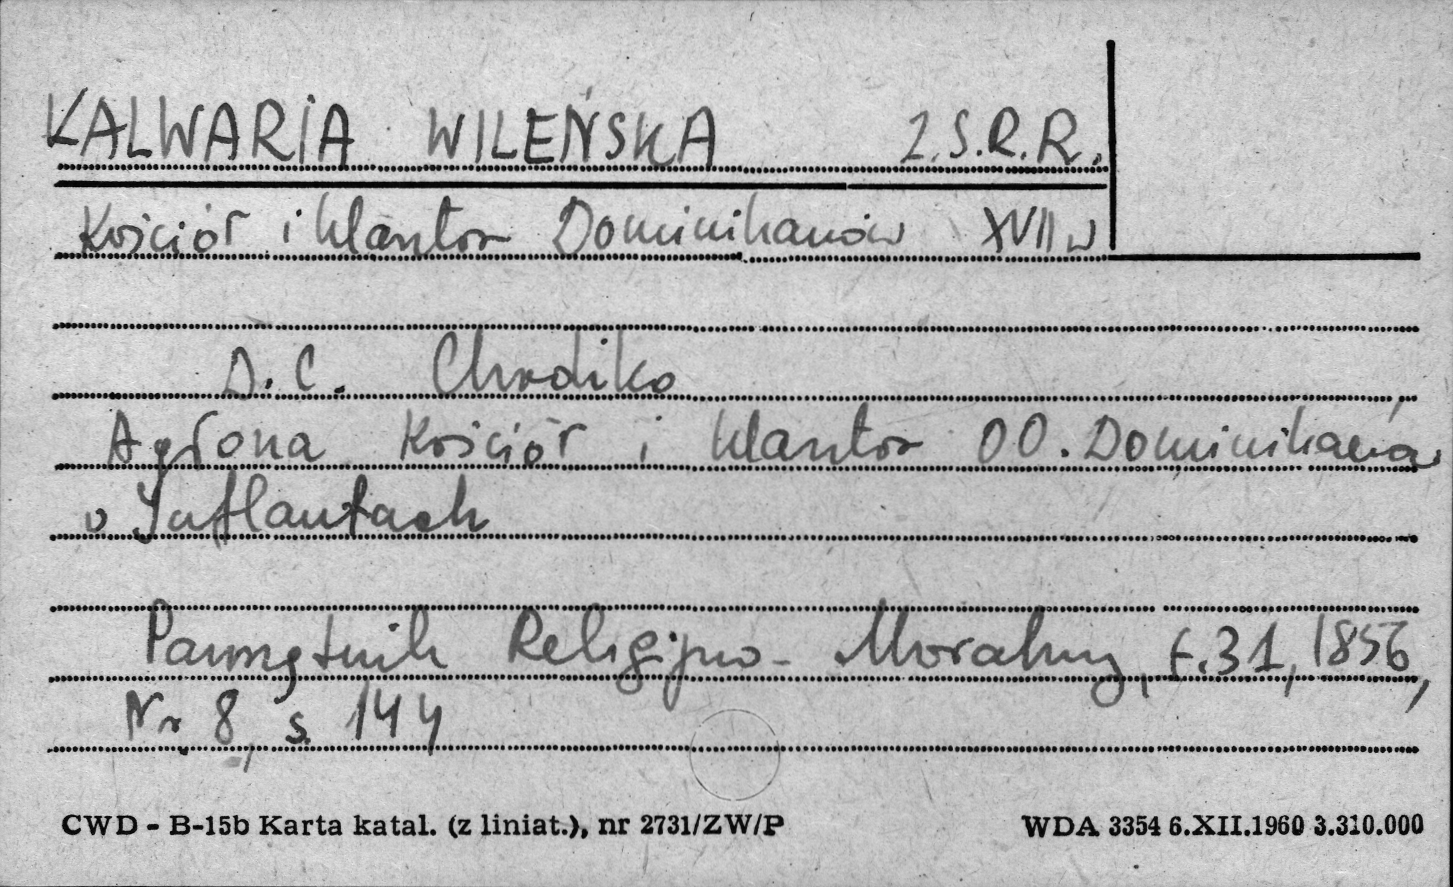 KALWARIA WILEŃSKA Z.S.R.R.
Kościół i klasztor Dominikanów XVII w
D. C. Chodźko
Agłona Kościół i klasztor OO. Dominikanów
w Inflantach
Pamiętnik Religijno-Moralny, t.31, 1856,
Nr 8, s. 144
CWD - B-15b Karta katal. (z liniat.), nr 2731/ZW/P WDA 3354 6.XII.1960 3.310.000